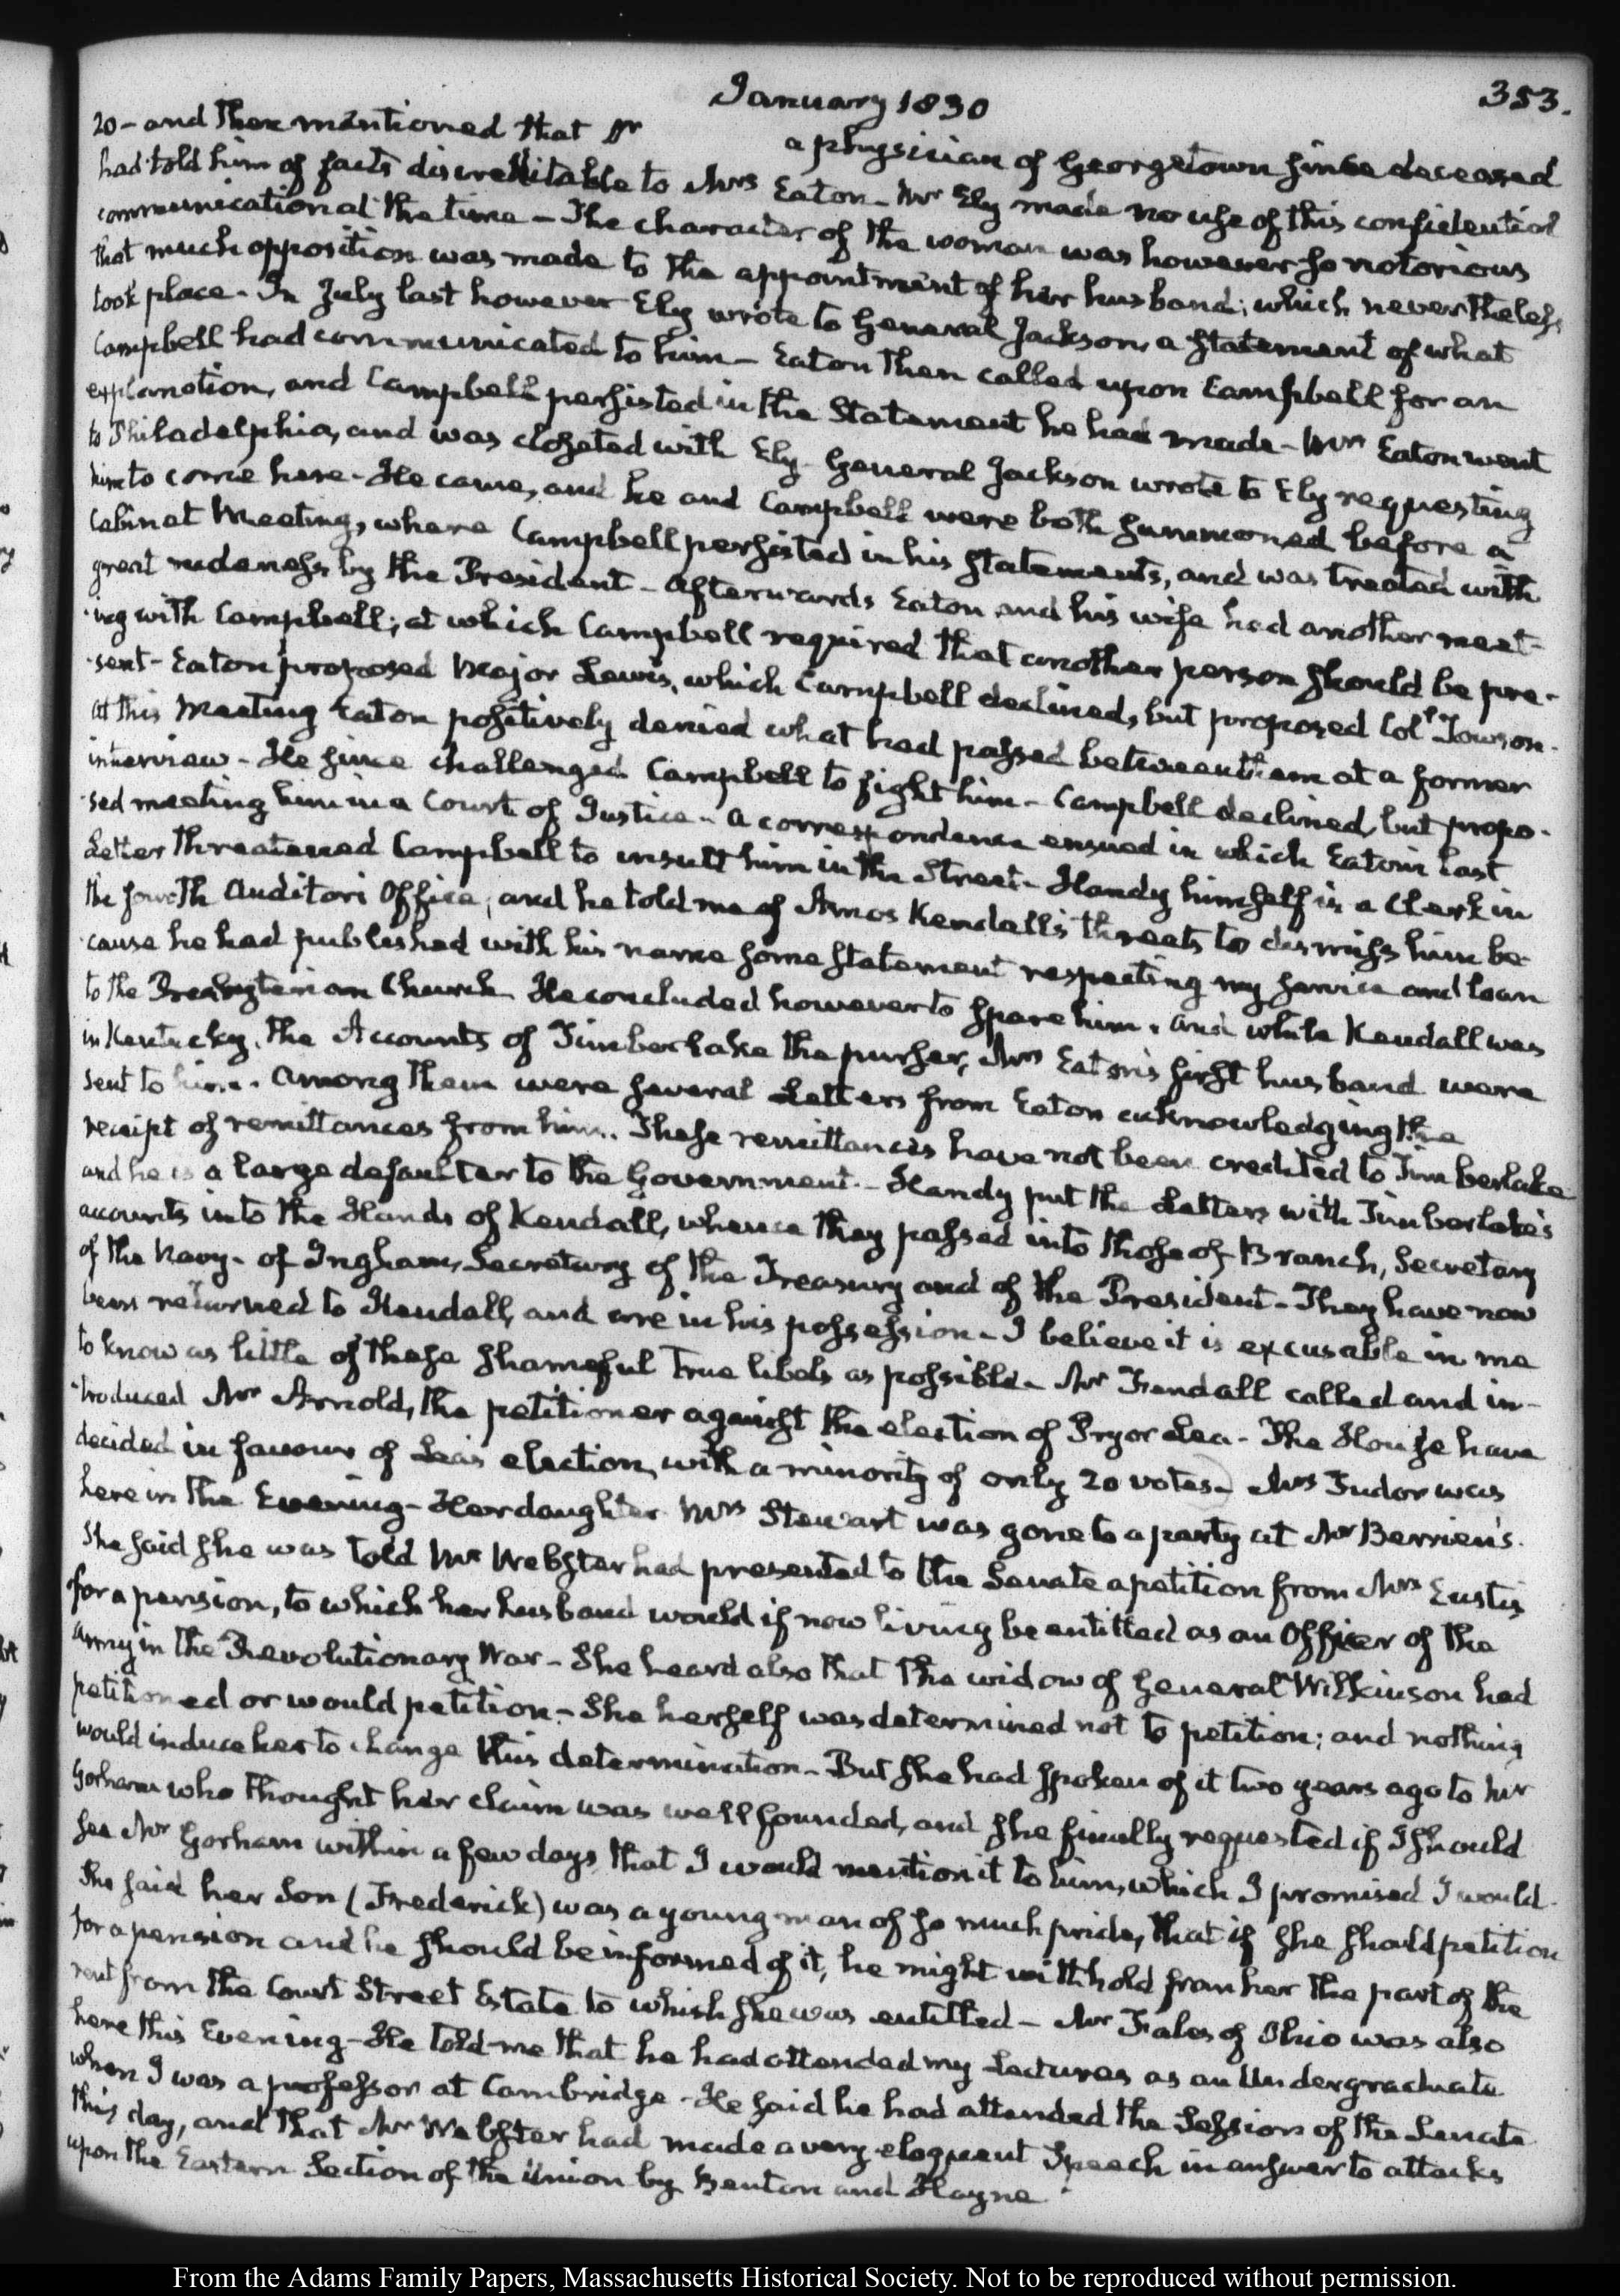 January 1830
353.
20 - and then mentioned that Dr a physician of Georgetown since deceased
had told him of facts discreditable to Mrs Eaton - Mr Ely made no use of this confidential
communication at the time - The character of the woman was however so notorious
that much opposition was made to the appointment of her husband; which nevertheless
took place - In July last however Ely wrote to General Jackson, a statement of what
Campbell had communicated to him - Eaton then called upon Campbell for an
explanation, and Campbell persisted in the Statement he had made - Mrs Eaton went
to Philadelphia, and was closeted with Ely - General Jackson wrote to Ely requesting
him to come here - He came, and he and Campbell were both summoned before a
Cabinet Meeting, where Campbell persisted in his statements, and was treated with
great rudeness by the President - Afterwards Eaton and his wife had another meet-
ing with Campbell; at which Campbell required that another person should be pre-
sent - Eaton proposed Major Lewis, which Campbell declined, but proposed Coll Towson -
At this Meeting Eaton positively denied what had passed between them at a former
interview - He since challenged Campbell to fight him - Campbell declined, but propo-
sed meeting him in a Court of Justice - A correspondence ensued in which Eaton's last
Letter threatened Campbell to insult him in the Street - Handy himself is a Clerk in
the fourth Auditor's Office; and he told me of Amos Kendall's threats to dismiss him be-
cause he had published with his name some statement respecting my service and loan
to the Presbyterian Church. He concluded however to spare him. And while Kendall was
in Kentucky, the Accounts of Timberlake the purser, Mrs Eaton's first husband were
sent to him. Among them were several Letters from Eaton acknowledging the
receipt of remittances from him. These remittances have not been credited to Timberlake
and he is a large defaulter to the Government. - Handy put the Letters with Timberlake's
accounts into the Hands of Kendall, whence they passed into those of Branch, Secretary
of the Navy - of Ingham, Secretary of the Treasury and of the President - They have now
been returned to Kendall, and are in his possession - I believe it is excusable in me
to know as little of these shameful true libels as possible - Mr Fendall called and in-
troduced Mr Arnold, the petitioner against the election of Pryor Lea - The House have
decided in favour of Lea's election, with a minority of only 20 votes - Mrs Tudor was
here in the Evening - Her daughter Mrs Stewart was gone to a party at Mr Berrien's.
She said she was told Mr Webster had presented to the Senate a petition from Mrs Eustis
for a pension, to which her husband would if now living be entitled as an Officer of the
army in the Revolutionary War - She heard also that the widow of General Wilkinson had
petitioned or would petition - She herself was determined not to petition; and nothing
would induce her to change this determination - But she had spoken of it two years ago to Mr
Gorham who thought her claim was well founded, and she finally requested if I should
see Mr Gorham within a few days, that I would mention it to him, which I promised I would -
She said her Son (Frederick) was a young man of so much pride, that if she should petition
for a pension and he should be informed of it, he might withhold from her the part of the
rent from the Court Street Estate to which she was entitled - Mr Fales of Ohio was also
here this Evening - He told me that he had attended my Lectures as an Undergraduate
when I was a professor at Cambridge - He said he had attended the Session of the Senate
this day, and that Mr Webster had made a very eloquent Speech in answer to attacks
upon the Eastern Section of the Union by Benton and Hayne.
From the Adams Family Papers, Massachusetts Historical Society. Not to be reproduced without permission.